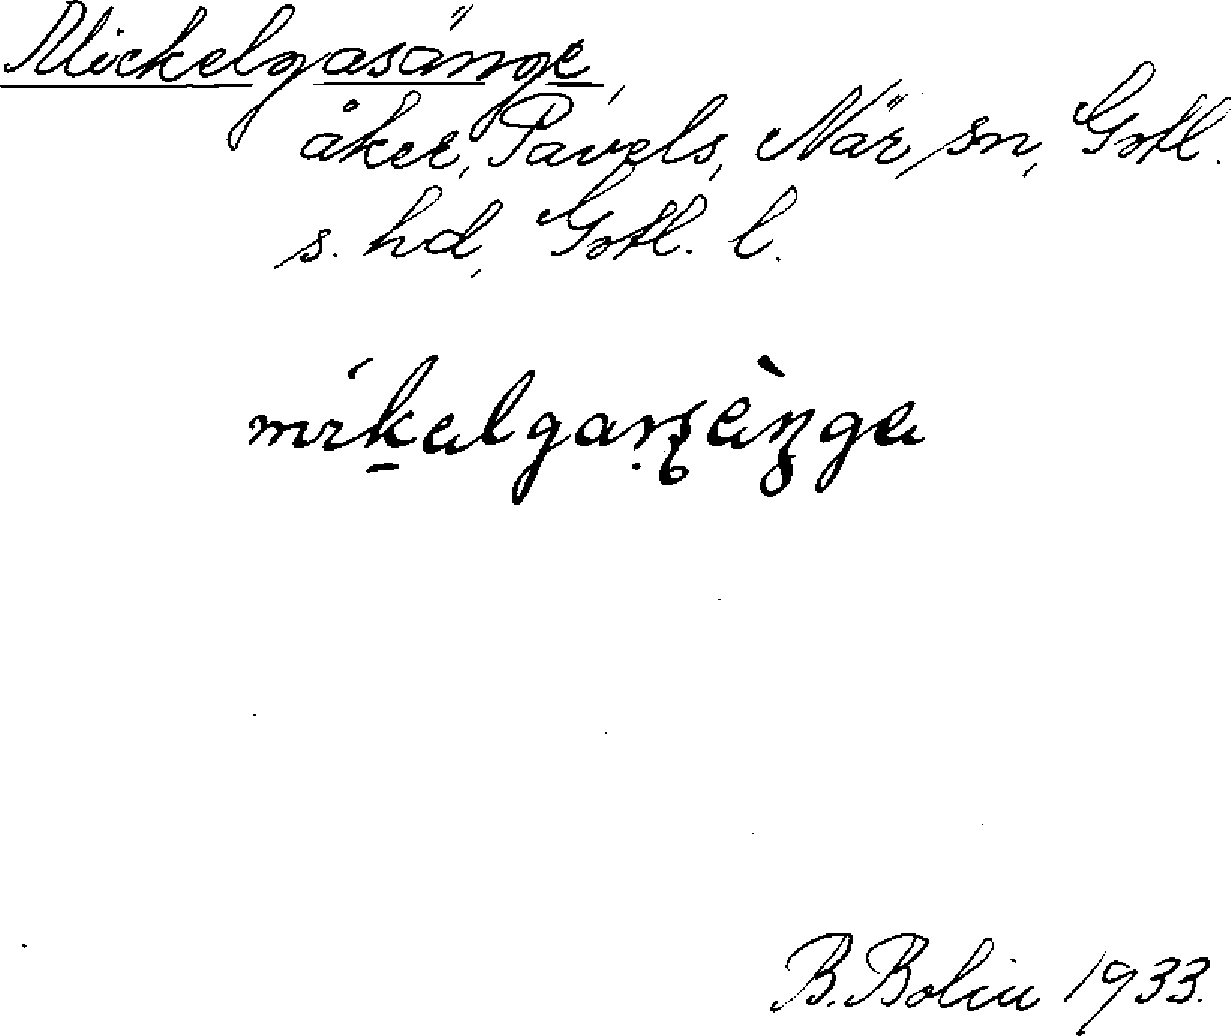 Mickelgasänge,
åker, Pavels, När, sn, Gotl.
s. hd, Gotl. l.
B. Bolin 1933.